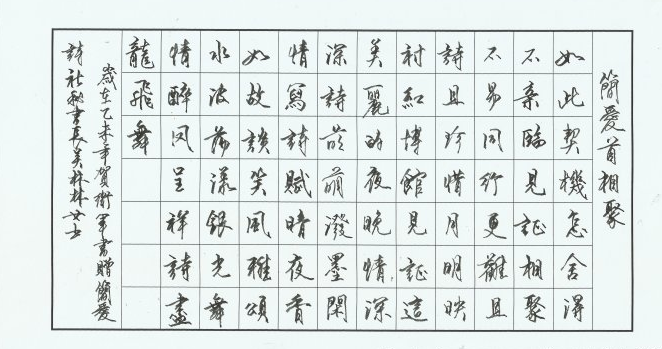 簡愛首相聚
如此契機怎舍得
不亲臨見証相聚
不易同行更難且
詩且珍惜月明映
衬紅博館見証這
美麗的夜晚情深
深詩葯萌潑墨閑
情寫詩賦晴夜香
如故談笑風雅頌
水波蕩漾銀光舞
情醉凤呈祥詩盡
龍飛舞
歲在乙未年賀衛軍書贈簡愛
詩社秘書長美格林女士